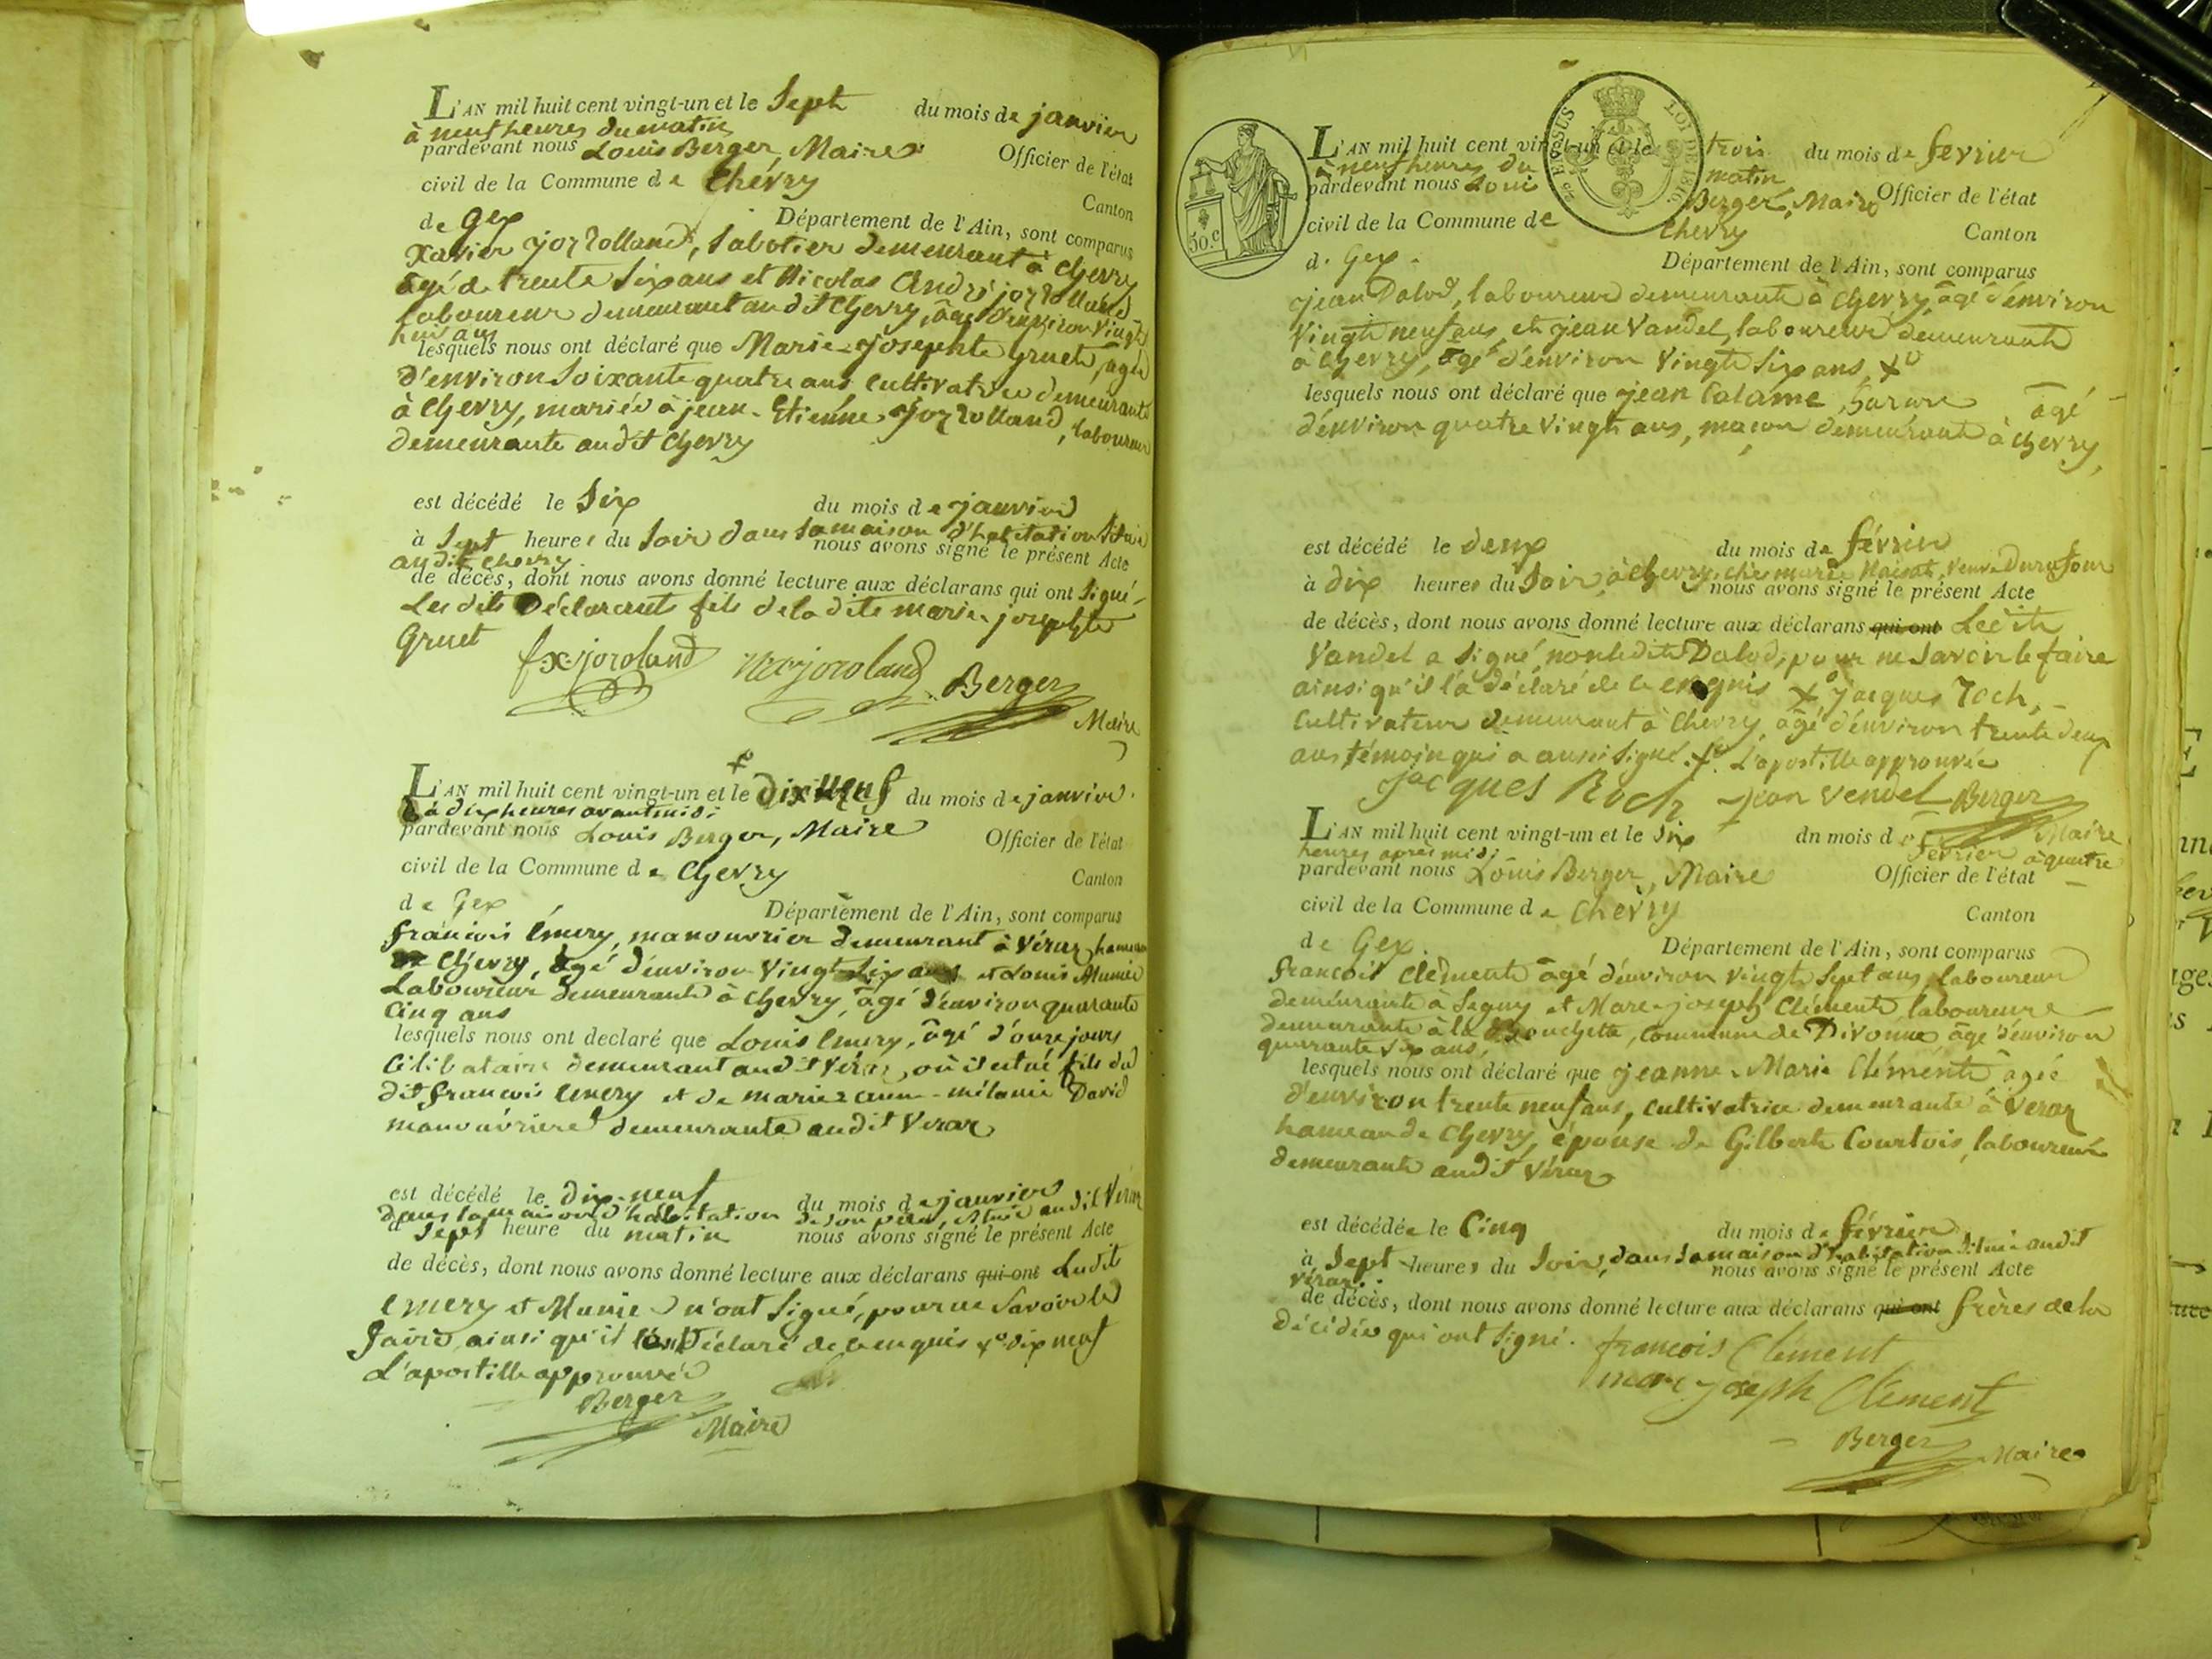 L'AN mil huit cent vingt-un et le Sept du mois de janvier
à neuf heures du matin
pardevant nous Louis Berger, Maire Officier de l'état
civil de la Commune de Chevry Canton
de Gex Département de l'Ain, sont comparus
Xavier jozrolland, Sabotier demeurant à Chevry
âgé de trente Six ans et Nicolas André jozrolland
laboureur demeurant audit Chevry, âgé d'environ vingt
huit ans
lesquels nous ont déclaré que Marie-josephte Gruet, agée
d'environ Soixante quatre ans Cultivatrice demeurante
à Chevry, mariée à jean-Etienne jozrolland, laboureur
demeurante audit Chevry
est décédé le Six du mois de janvier
à Sept heures du Soir dans Sa maison d'habitation Située
audit Chevry. nous avons signé le présent Acte
de décès, dont nous avons donné lecture aux déclarans qui ont Signé
Les dits Déclarants fils de la dite marie-josephte
Gruet fx jorolland jorolland Berger
Maire
L'AN mil huit cent vingt-un et le dix neuf du mois de janvier.
à dix heures avant midi
pardevant nous Louis Berger, Maire Officier de l'état
civil de la Commune de Chevry Canton
de Gex Département de l'Ain, sont comparus
françois Emery, manouvrier demeurant à Véraz hameau
de Chevry, âgé d'environ vingt Six ans et Louis Munier
Laboureur demeurant à Chevry, âgé d'environ quarante
Cinq ans
lesquels nous ont declaré que Louis Emery, âgé d'onze jours
Célibataire demeurant audit Véraz, où il est né fils du
dit françois Emery et de marie mélanie David
manouvrière demeurante audit Veraz
est décédé le dix-neuf du mois de janvier
dans la maison d'habitation de son père, Située audit Véraz
à Sept heure du matin nous avons signé le présent Acte
de décès, dont nous avons donné lecture aux déclarans qui ont Lesdits
Emery et Munier n'ont Signé, pour ne Savoir le
faire ainsi qu'il l'ont Déclaré de ce enquis xº dix neuf
L'apostille approuvée
Berger
Maire
L'AN mil huit cent vingt-un et le trois du mois de fevrier
à neuf heures du matin
pardevant nous Loui Berger, Maire Officier de l'état
civil de la Commune de Chevry Canton
de Gex. Département de l'Ain, sont comparus
50.c
LOI DE 1816
jean Dalod, laboureur demeurant à Chevry, âgé d'environ
Vingt neuf ans, et jean Vandel, laboureur demeurant
à Chevry, âgé d'environ Vingt Six ans, xº
lesquels nous ont déclaré que jean Calame âgé
d'environ quatre Vingt ans, maçon demeurant à Chevry,
est décédé le deux du mois de février
à dix heures du Soir, à Chevry, chés marie veuve Dunafour
nous avons signé le présent Acte
de décès, dont nous avons donné lecture aux déclarans qui ont Ledit
Vandel a Signé, non ledit Dalod, pour ne Savoir le faire
ainsi qu'il l'a déclaré de ce enquis xº jacques Roch,
Cultivateur demeurant à Chevry, âgé d'environ trente deux
ans témoin qui a aussi Signé. xº. L'apostille approuvée
Jacques Roch jean vendel Berger
Maire
L'AN mil huit cent vingt-un et le Six du mois de fevrier à quatre
heures après midi
pardevant nous Louis Berger, Maire Officier de l'état
civil de la Commune de Chevry Canton
de Gex. Département de l'Ain, sont comparus
françois Clément âgé d'environ vingt Sept ans, laboureur
demeurant à Segny et Marc-joseph Clément, laboureur
demeurant à la Commune de Divonne âgé d'environ
quarante Six ans,
lesquels nous ont déclaré que jeanne-Marie Clément âgée
d'environ trente neuf ans, Cultivatrice demeurante à Veraz
hameau de Chevry, épouse de Gilbert Courtois, laboureur
demeurant audit Véraz
est décédée le Cinq du mois de février
à Sept heures du Soir, dans Sa maison d'habitation Située audit
Véraz. nous avons signé le présent Acte
de décès, dont nous avons donné lecture aux déclarans qui ont frères de la
décédée qui ont Signé. françois Clément
marc joseph Clément
Berger
Maire